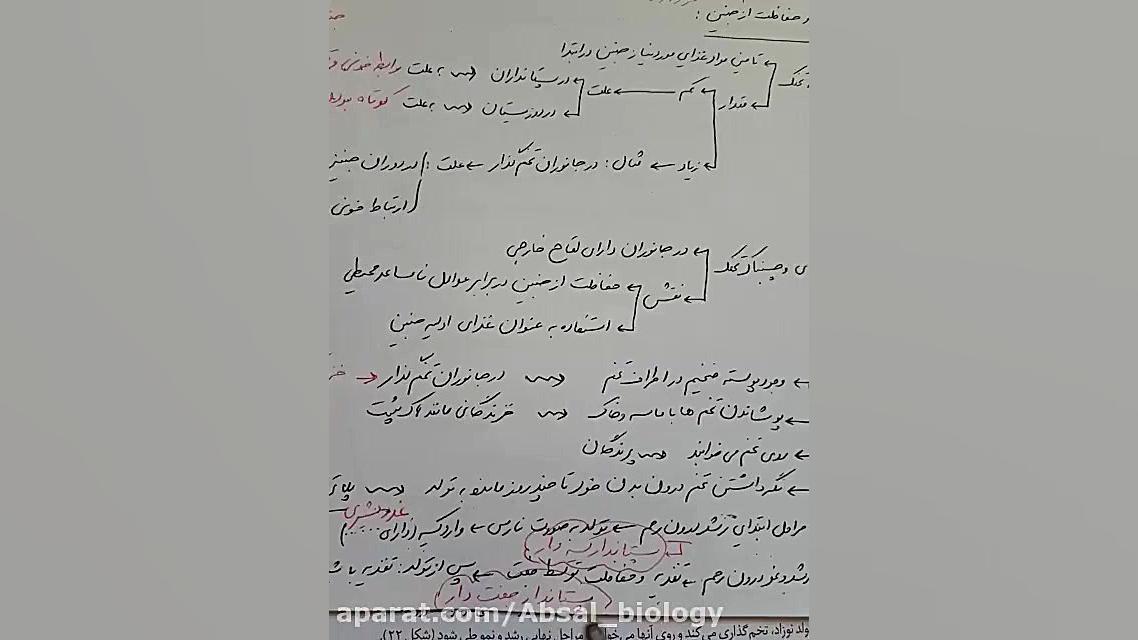 و حفاظت از جنین :
تامین مواد غذایی مورد نیاز جنین در ابتدا
مقدار
کم ← علت
در پستانداران به علت رابطه خونی
در دوزیستان به علت کوتاه بودن
زیاد ← مثال : در جانوران تخم گذار ← علت : در دوران جنینی
ارتباط خونی
ی و چسبناک تخمک
در جانوران دارای لقاح خارجی
نقش
حفاظت از جنین در برابر عوامل نامساعد محیطی
استفاده به عنوان غذای اولیه جنین
← وجود پوسته ضخیم در اطراف تخم در جانوران تخم گذار →
← پوشاندن تخم ها با ماسه و خاک خزندگانی مانند لاک پشت
← روی تخم می خوابند پرندگان
← نگه داشتن تخم درون بدن خود تا چند روز مانده به تولد
غدد شیری
مراحل ابتدایی رشد درون رحم ← تولد به صورت نارس ← وارد کیسه (دارای ......)
پستاندار کیسه دار
رشد و نمو درون رحم ← تغذیه و حفاظت توسط جفت ← پس از تولد : تغذیه با
پستاندار جفت دار
aparat.com/Absal_biology
ولد نوزاد، تخم‌گذاری می‌کند و روی آنها می‌خو مراحل نهایی رشد و نمو طی شود (شکل ۲۲).